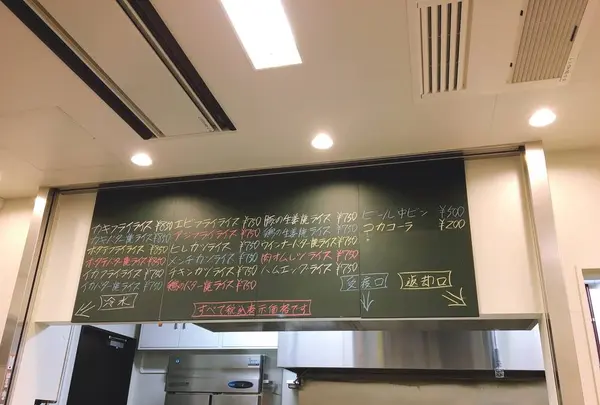 カキフライライス ¥850
カキバター焼ライス ¥850
ホタテフライライス ¥750
ホタテバター焼ライス ¥750
イカフライライス ¥750
イカバター焼ライス ¥750
エビフライライス ¥750
アジフライライス ¥750
ヒレカツライス ¥750
メンチカツライス ¥750
チキンカツライス ¥750
鶏のバター焼ライス ¥750
豚の生姜焼ライス ¥750
鶏の生姜焼ライス ¥750
ウインナーバター焼ライス ¥750
肉オムレツライス ¥750
ハムエッグライス ¥750
ビール中ビン ¥500
コカコーラ ¥200
冷水
すべて税込表示価格です
受渡口
返却口